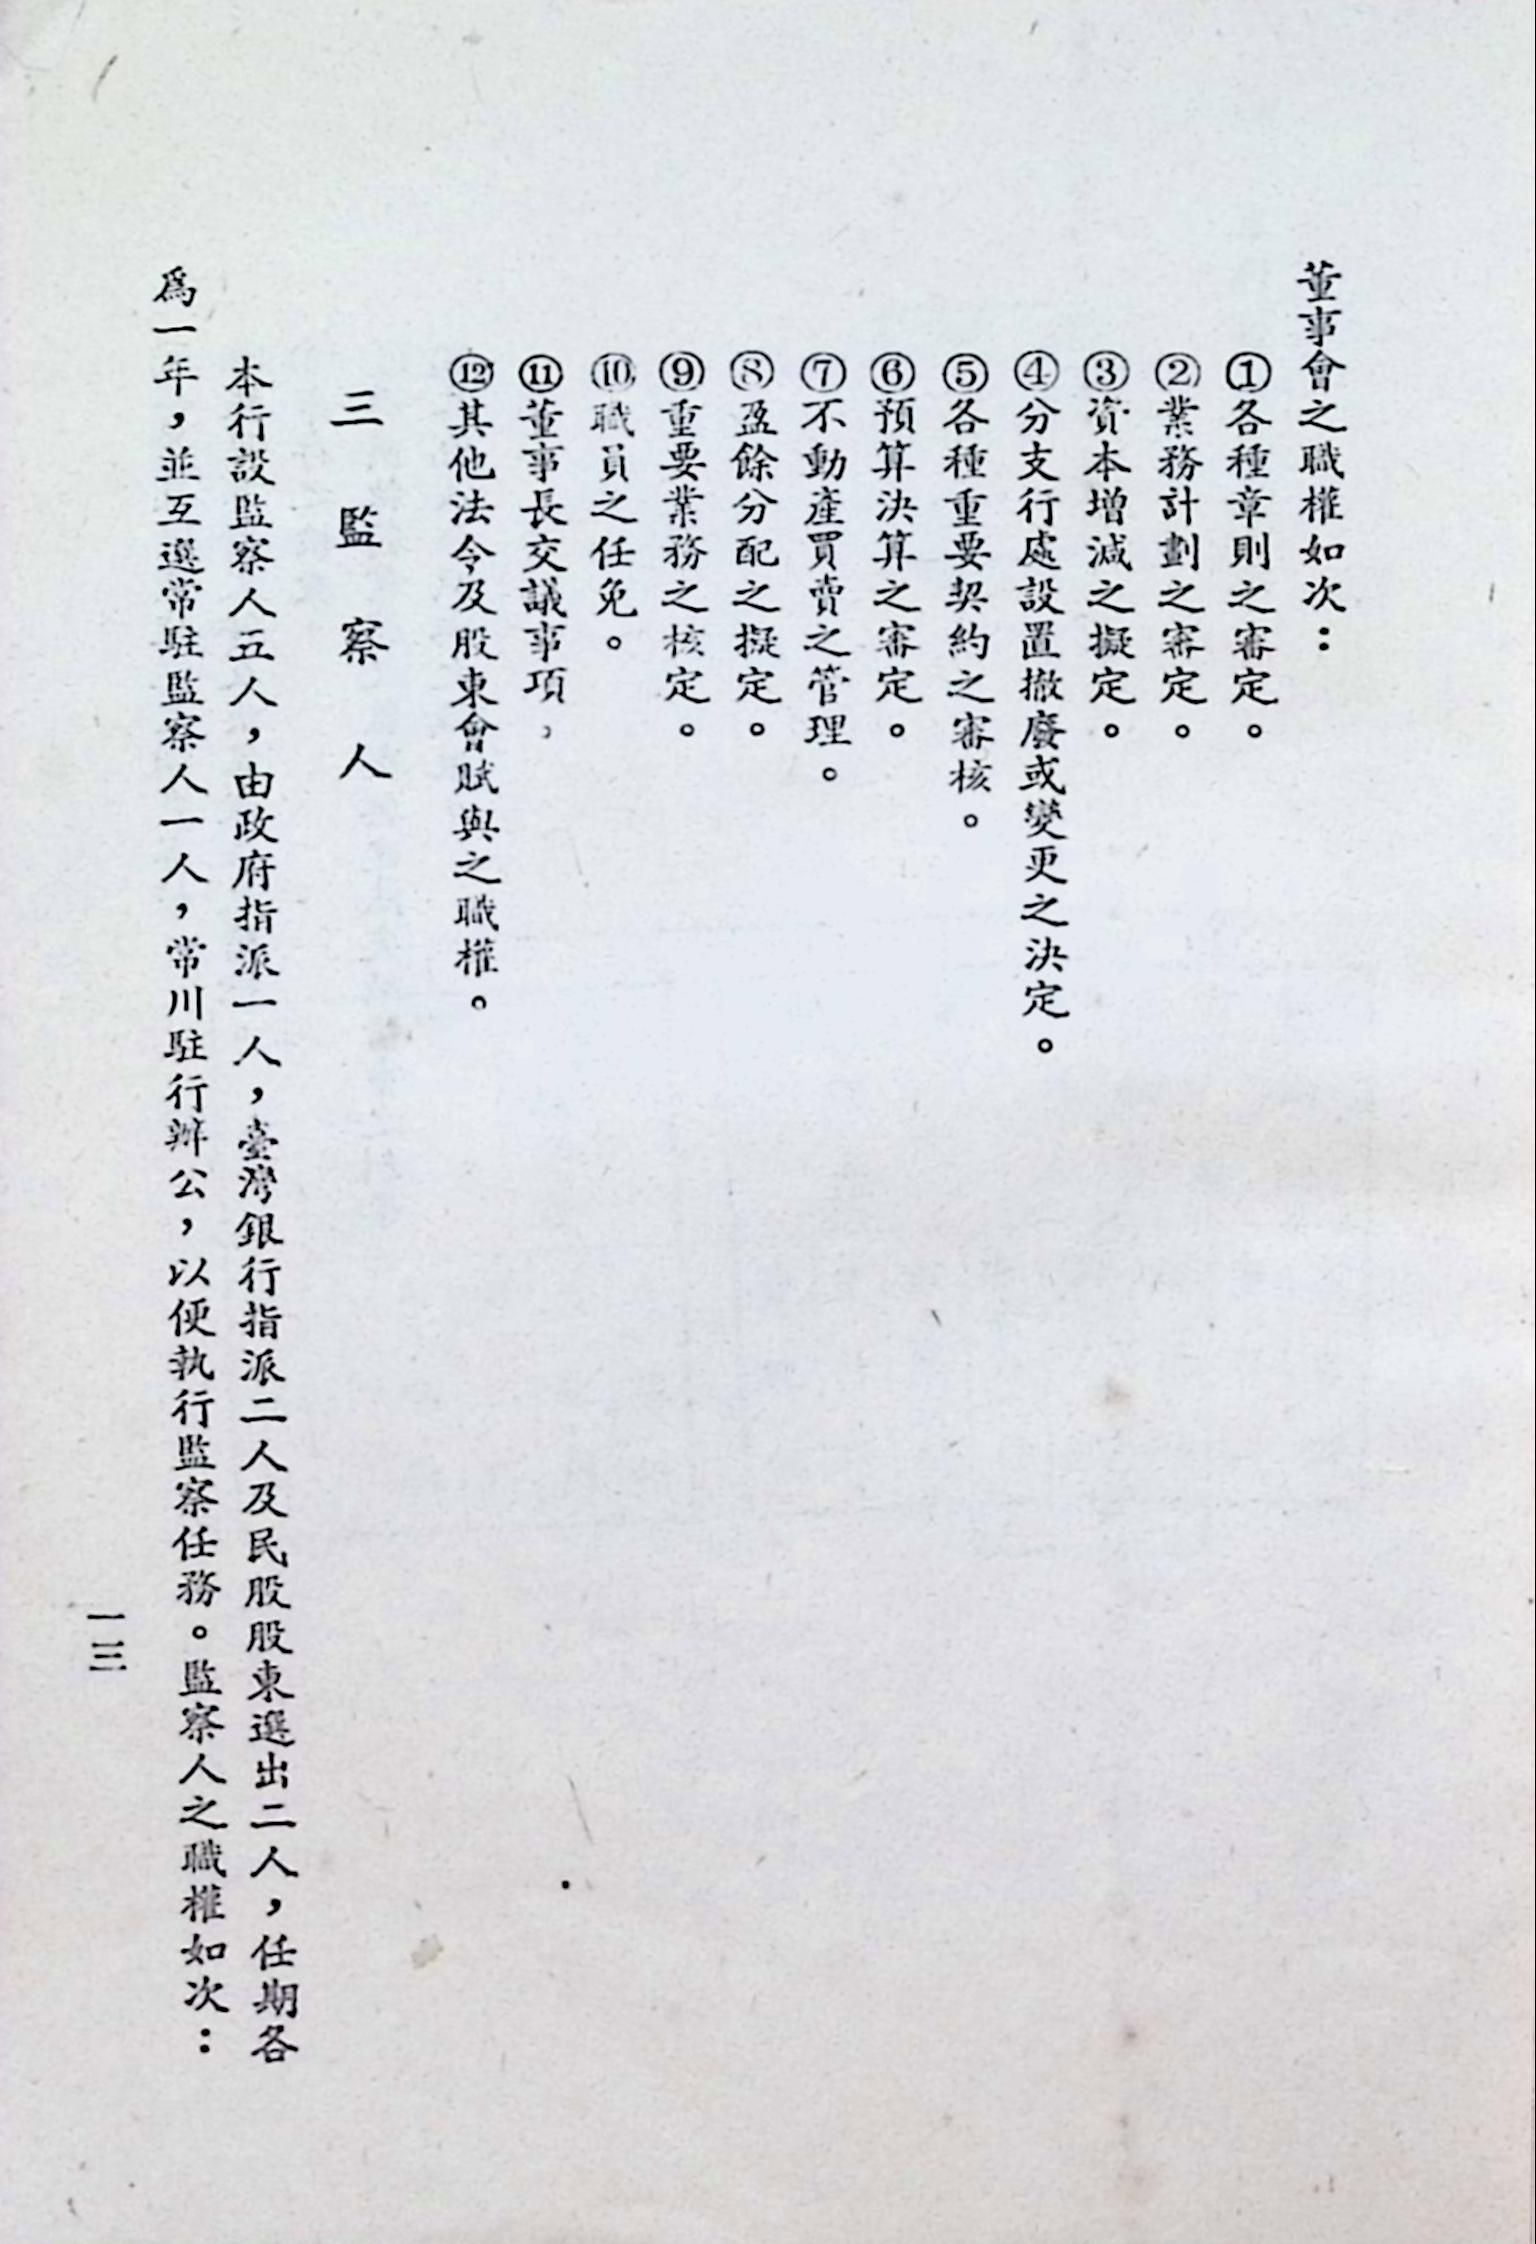 董事會之職權如次：
①各種章則之審定。
②業務計劃之審定。
③資本增減之擬定。
④分支行處設置撤廢或變更之決定。
⑤各種重要契約之審核。
⑥預算決算之審定。
⑦不動產買賣之管理。
⑧盈餘分配之擬定。
⑨重要業務之核定。
⑩職員之任免。
⑪董事長交議事項，
⑫其他法令及股東會賦與之職權。
三監察人
本行設監察人五人，由政府指派一人，臺灣銀行指派二人及民股股東選出二人，任期各
爲一年，並互選常駐監察人一人，常川駐行辦公，以便執行監察任務。監察人之職權如次：
一三